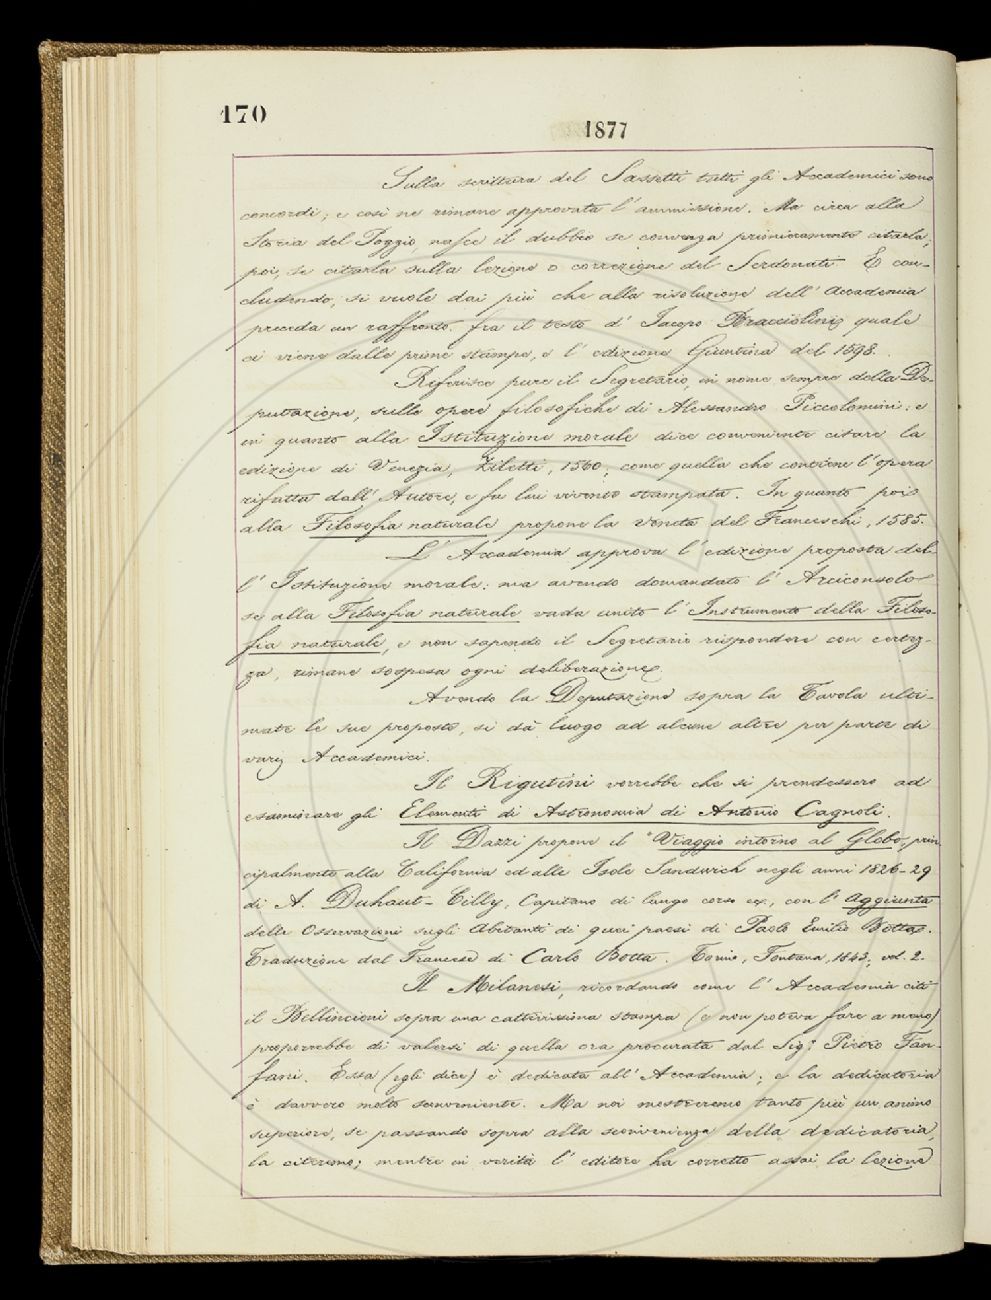 170
1877
Sulla scrittura del Sassetti tutti gli Accademici sono
concordi; e così ne rimane approvata l'ammissione. Ma circa alla
Storia del Poggio, nasce il dubbio se convenga primieramente citarla;
poi, se citarla sulla lezione o correzione del Serdonati. E con-
cludendo, si vuole dai più che alla risoluzione dell'Accademia
preceda un raffronto fra il testo d'Jacopo Bracciolini, quale
ci viene dalle prime stampe, e l'edizione Giuntina del 1598.
Riferisce pure il Segretario, in nome sempre della De-
putazione, sulle opere filosofiche di Alessandro Piccolomini: e
in quanto alla Istituzione morale dice conveniente citare la
edizione di Venezia, Ziletti, 1560; come quella che contiene l'opera
rifatta dall'Autore, e fu lui vivente stampata. In quanto poi
alla Filosofia naturale propone la veneta del Franceschi, 1585.
L'Accademia approva l'edizione proposta del-
l'Istituzione morale: ma avendo domandato l'Arciconsolo
se alla Filosofia naturale vada unito l'Instrumento della Filoso-
fia naturale, e non sapendo il Segretario rispondere con certez-
za, rimane sospesa ogni deliberazione.
Avendo la Deputazione sopra la Tavola ulti-
mate le sue proposte, si dà luogo ad alcune altre per parte di
varj Accademici.
Il Rigutini vorrebbe che si prendessero ad
esaminare gli Elementi di Astronomia di Antonio Cagnoli.
Il Dazzi propone il "Viaggio intorno al Globo, prin
cipalmente alla California ed alle Isole Sandwich negli anni 1826-29
di A. Duhaut-Cilly, Capitano di lungo corso ec., con l'Aggiunta
delle Osservazioni sugli Abitanti di quei paesi di Paolo Emilio Botta.
Traduzione dal Francese di Carlo Botta. Torino, Fontana, 1843, vol. 2.
Il Milanesi, ricordando come l'Accademia citi
il Bellincioni sopra una cattivissima stampa (e non poteva fare a meno)
proporrebbe di valersi di quella ora procurata dal Sig.r Pietro Fan-
fani. Essa (egli dice) è dedicata all'Accademia; e la dedicatoria
è davvero molto sconveniente. Ma noi mostreremo tanto più un animo
superiore, se passando sopra alla sconvenienza della dedicatoria,
la citeremo; mentre in verità l'editore ha corretto assai la lezione